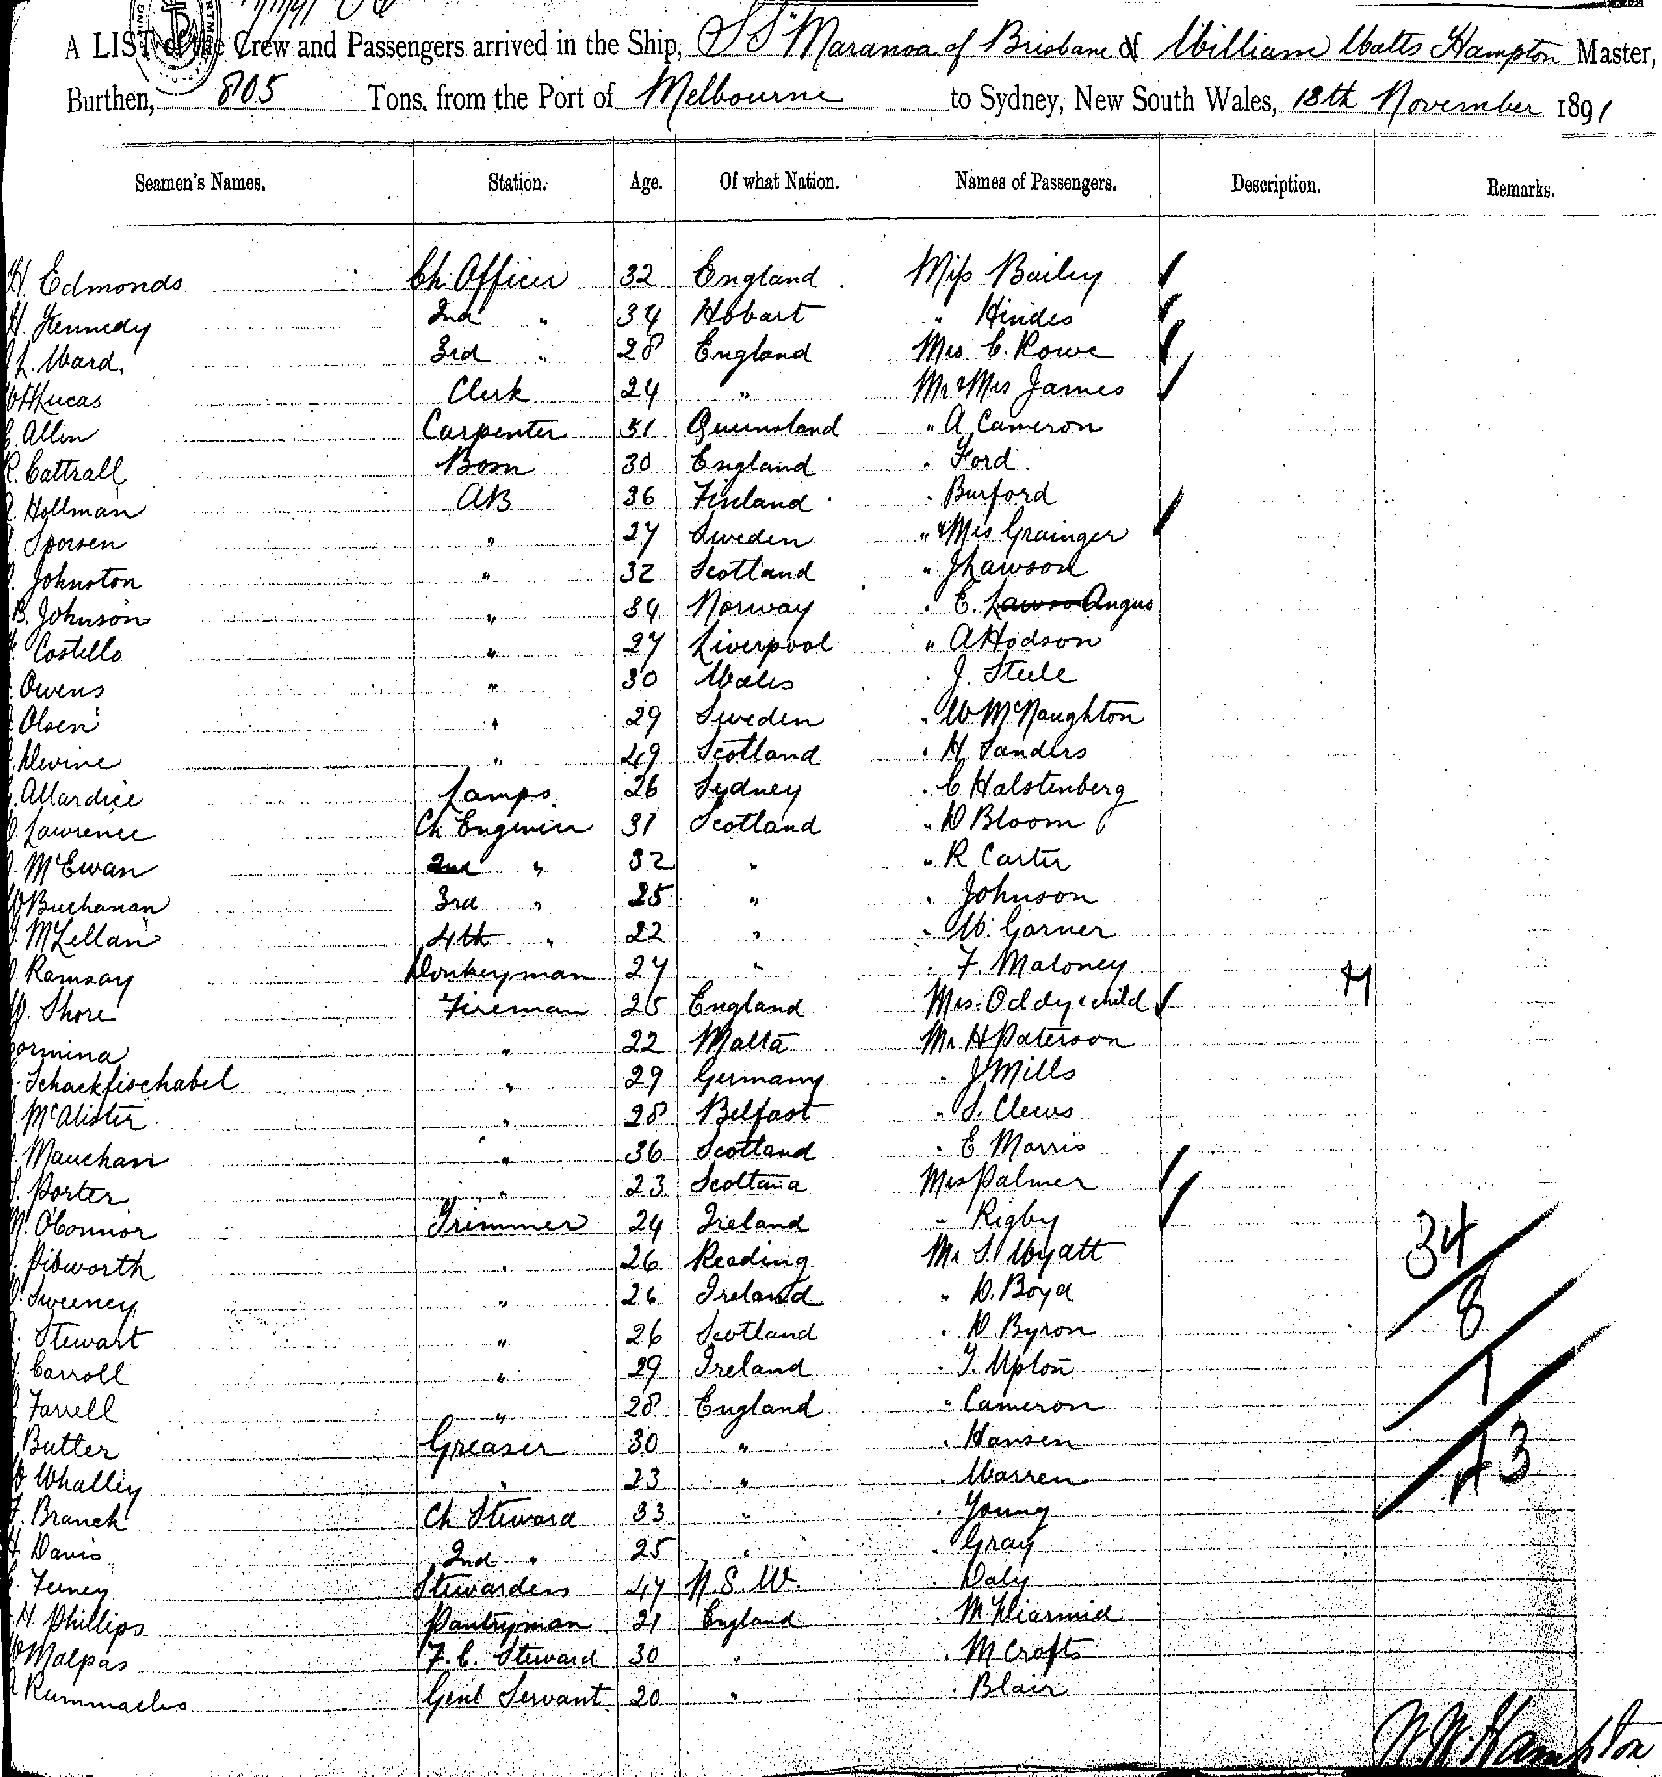 A LIST of the Crew and Passengers arrived in the Ship, SS Maranoa of Brisbane of William Watts Hampton Master,
Burthen, 805 Tons, from the Port of Melbourne to Sydney, New South Wales, 18th November 1891
Seamen's Names. Station. Age. Of what Nation. Names of Passengers. Description. Remarks.
H. Edmonds Ch Officer 32 England Miss Bailey
H. Kennedy 2nd " 34 Hobart " Hindes
L. Ward 3rd " 28 England Mrs C. Rowe
Lucas Clerk 24 " Mr & Mrs James
Allen Carpenter 31 Queensland " A Cameron
R. Cattrall Bosn 30 England " Ford
Hollman AB 36 Finland " Burford
Sporsen " 27 Sweden " & Mrs Grainger
Johnston " 32 Scotland " J Lawson
B. Johnson " 34 Norway " E. Lawson Angus
Costello " 27 Liverpool " A Hodson
Owens " 30 Wales " J. Steele
Olsen " 29 Sweden " W McNaughton
Devine " 49 Scotland " H. Sanders
Allardice Lamps 26 Sydney " C Halstenberg
Lawrence Ch Engineer 31 Scotland " D Bloom
McEwan 2nd " 32 " " R Carter
Buchanan 3rd " 25 " " Johnson
McLellan 4th " 22 " " W. Garner
Ramsay Donkeyman 27 " " F. Maloney
Shore Fireman 25 England Mrs. Oddy & child
" 22 Malta Mr H Paterson
Schackfischabel " 29 Germany " J Mills
McAlister " 28 Belfast " S. Clews
Mauchan " 36 Scotland " E Morris
Porter " 23 Scotland Mrs Palmer
O'Connor Trimmer 24 Ireland " Rigby
Pibworth " 26 Reading Mr S. Wyatt 34
Sweeney " 26 Ireland " D. Boyd 8
Stewart " 26 Scotland " D Byron
Carroll " 29 Ireland " T. Upton 1
Farrell " 28 England " Cameron
Butler Greaser 30 " " Hansen 43
Whalley " 23 " " Warren
F. Branch Ch Steward 33 " " Young
H. Davis 2nd " 25 " " Gray
Stewardess 47 N.S.W. " Daly
H Phillips Pantryman 21 England " McDiarmid
Malpas F.C. Steward 30 " " M Crofts
Genl Servant 20 " " Blair
W W Hampton